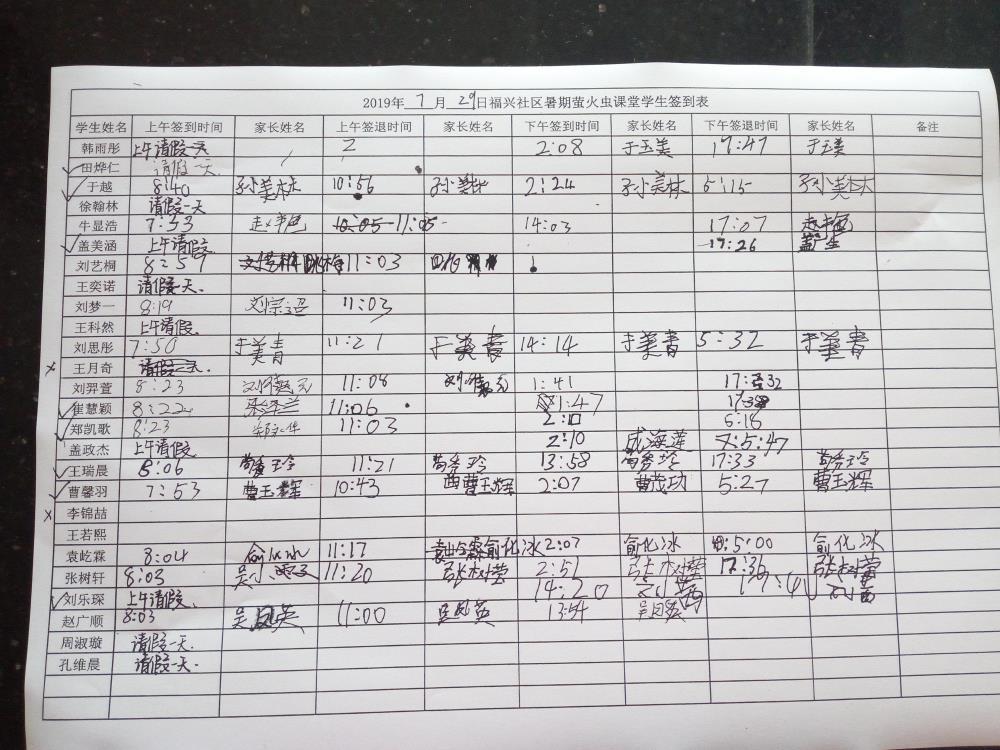 2019年 7 月 29 日福兴社区暑期萤火虫课堂学生签到表
学生姓名 上午签到时间 家长姓名 上午签退时间 家长姓名 下午签到时间 家长姓名 下午签退时间 家长姓名 备注
韩雨彤 上午请假 2:08 于玉美 17:47 于玉美
田烨仁 请假一天
于越 8:40 孙美林 10:56 孙美林 2:24 孙美林 5:15 孙美林
徐翰林 请假一天
牛显浩 7:53 11:05 14:03 17:07
盖美涵 上午请假 17:26
刘艺桐 8:59 11:03
王奕诺 请假一天
刘梦一 8:19 11:03
王科然 上午请假
刘思彤 7:50 于美青 11:21 于美青 14:14 于美青 5:32 于美青
王月奇 请假一天
刘羿萱 8:23 11:08 1:41
崔慧颖 8:22 11:06 1:47
郑凯歌 8:23 11:03 2:10
盖政杰 上午请假 2:10 成海莲 5:47
王瑞晨 8:06 11:21 13:58 17:33
曹馨羽 7:53 曹玉辉 10:43 曹玉辉 2:07 曹茂功 5:27 曹玉辉
李锦喆
王若熙
袁屹霖 8:04 俞化冰 11:17 俞化冰 2:07 俞化冰 5:00 俞化冰
张树轩 8:03 11:20 张树莹 2:51 张树莹 张树莹
刘乐琛 上午请假 14:20
赵广顺 8:03 吴凤英 11:00 吴凤英 13:54 吴凤英
周淑璇 请假一天
孔维晨 请假一天